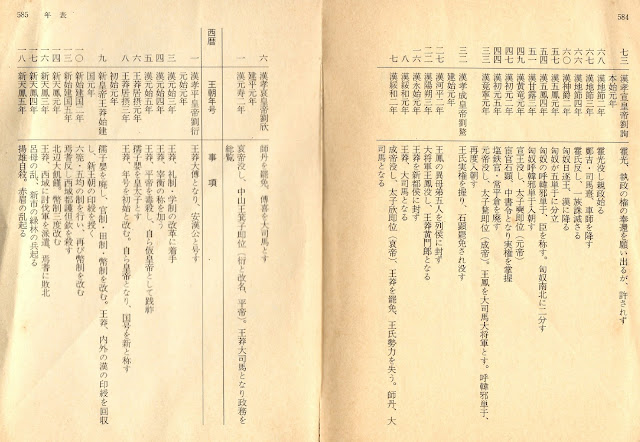 584
七三 漢孝宣皇帝劉詢 霍光、執政の権の奉還を願い出るが、許されず
本始元年
六八 漢地節二年 霍光没し、親政始る
六七 漢地節三年 鄭吉・司馬憙、車師を降す
六六 漢地節四年 霍氏反し、族誅滅さる
六〇 漢神爵二年 匈奴日逐王、漢に降る
五七 漢五鳳元年 匈奴が五単于に分立
五四 漢五鳳四年 匈奴の呼韓邪単于、臣を称す。匈奴南北に二分す
五一 漢甘露三年 匈奴呼韓邪単于入朝す
四九 漢黄竜元年 宣帝没し、太子奭即位(元帝)
四七 漢初元二年 宦官石顕、中書令となり実権を掌握
四四 漢初元五年 塩鉄官・常平倉を廃す
三三 漢竟寧元年 元帝没し、太子驁即位(成帝)。王鳳を大司馬大将軍とす。呼韓邪単于、
再度入朝す
三二 漢孝成皇帝劉驁 王氏実権を握り、石顕罷免され没す
建始元年
二七 漢河平二年 王鳳の異母弟五人を列侯に封ず
二二 漢陽朔三年 大将軍王鳳没し、王莽黄門郎となる
一六 漢永始元年 王莽を新都侯に封ず
八 漢綏和元年 王莽、大司馬となる
七 漢綏和二年 成帝没し、太子欣即位(哀帝)。王莽を罷免、王氏勢力を失う。師丹、大
司馬となる
585 年表
六 漢孝哀皇帝劉欣 師丹を罷免、傅喜を大司馬とす
建平元年
一 漢元寿二年 哀帝没し、中山王箕子即位(衎と改名、平帝)。王莽大司馬となり政務を
総覧
西暦 王朝年号 事項
一 漢孝平皇帝劉衎 王莽太傅となり、安漢公と号す
元始元年
三 漢元始三年 王莽、礼制・学制の改革に着手
四 漢元始四年 王莽、宰衡の称を加う
五 漢元始五年 王莽、平帝を毒殺し、自ら仮皇帝として践祚
六 王莽居摂元年 孺子嬰を皇太子とす
八 王莽居摂三年 王莽、年号を初始と改む。自ら皇帝となり、国号を新と称す
初始元年
九 新皇帝王莽始建 孺子嬰を廃し、官制・田制・幣制を改む。王莽、内外の漢の印綬を回収
国元年 し、新王朝の印綬を授く
一〇 新始建国二年 六筦・五均の制を行い、再び幣制を改む
一三 新始建国五年 焉耆反し、西域都護但欽を殺す
一四 新天鳳元年 北辺に大飢饉、幣制を三度改む
一六 新天鳳三年 王莽、西域に討伐軍を派遣、焉耆に敗北
一七 新天鳳四年 呂母の乱、新市の緑林の兵起る
一八 新天鳳五年 揚雄自殺。赤眉の乱起る